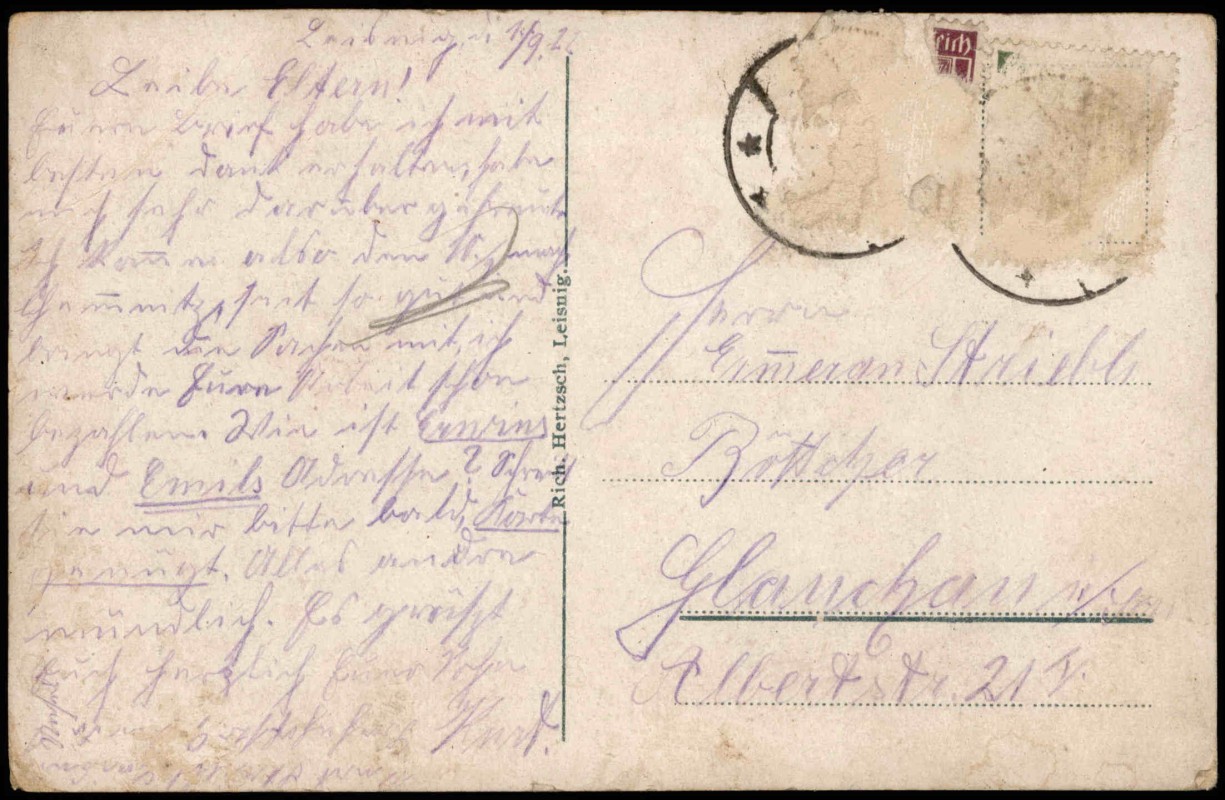 Leisnig, d. 14/9.22
Liebe Eltern!
Euern Brief habe ich mit
besten Dank erhalten, habe
mich sehr darüber gefreut.
Ich kom̄e also den
Chem̄nitz, seit so gut und
bringt die Sachen mit, ich
werde Eure Arbeit schon
bezahlen. Wie ist Erwins
und Emils Adresse? Schreibt
sie mir bitte bald, Karte
genügt. Alles andre
mündlich. Es grüßt
Euch herzlich Euer Sohn
Kurt.
Rich. Hertzsch, Leisnig.
rich
Herrn
Em̄meran Striebl
Böttcher
Glauchau i/Sa
Albertstr. 21 I.